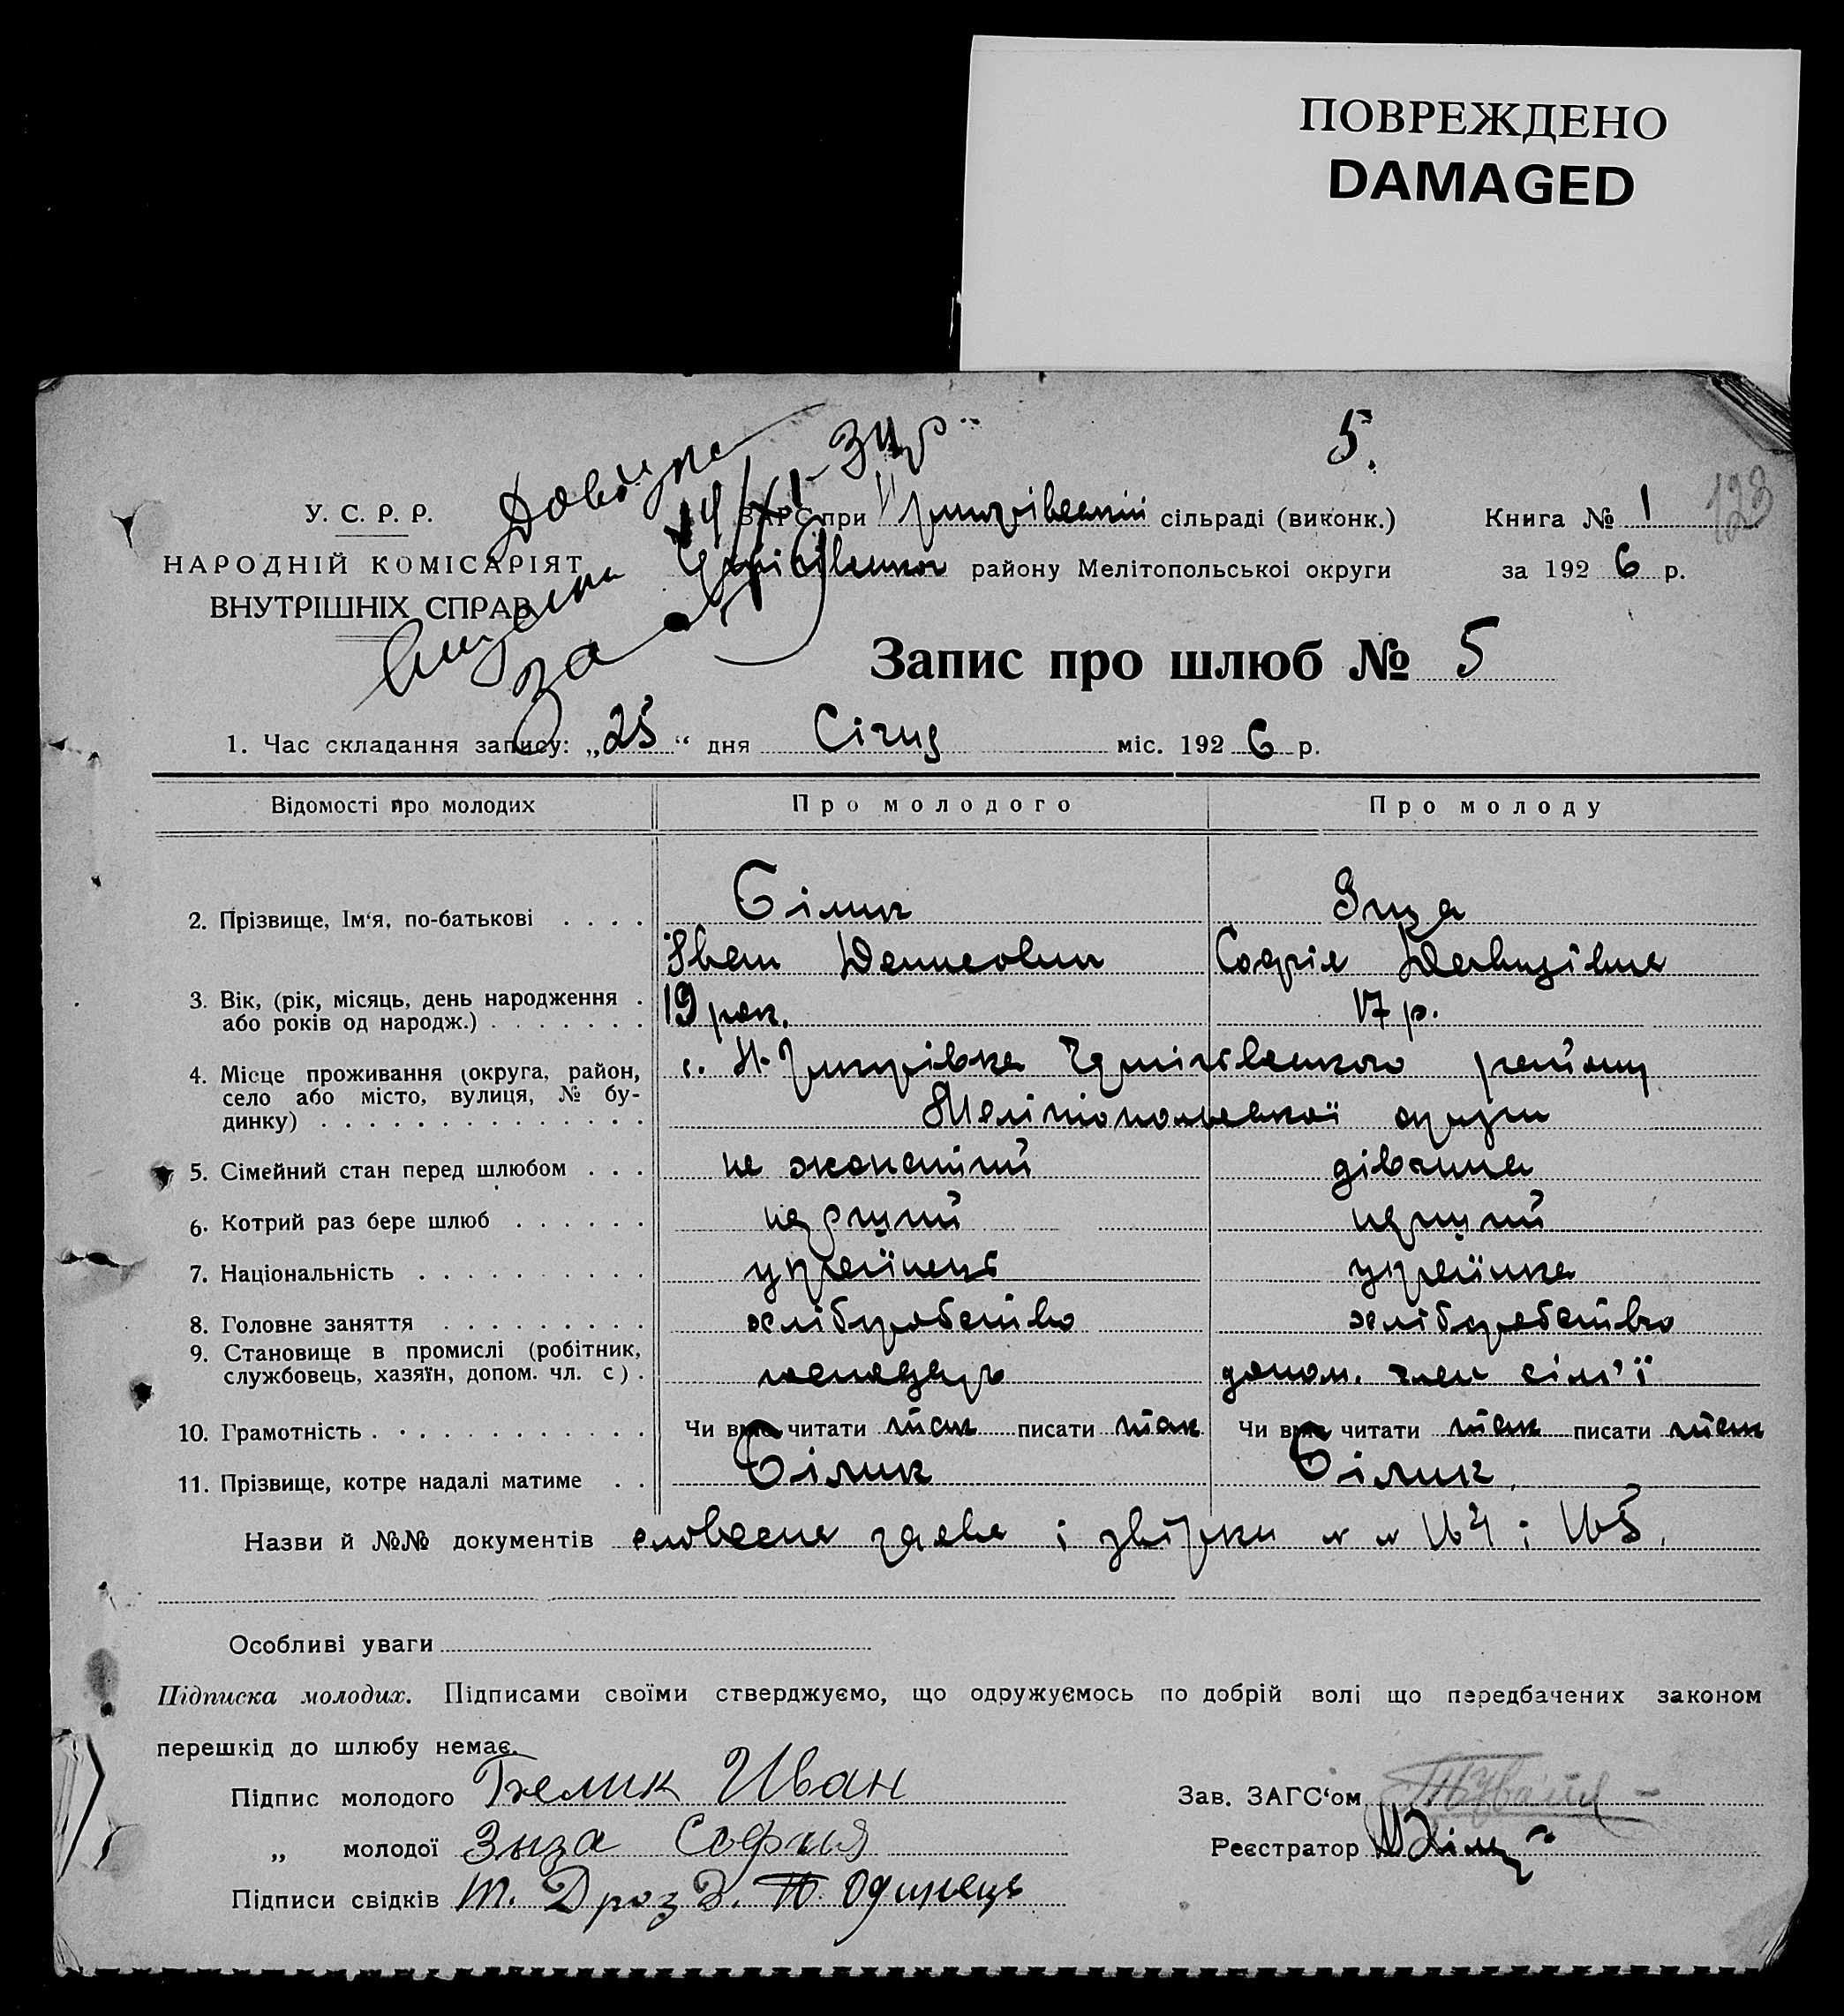 ПОВРЕЖДЕНО
DAMAGED
5.
123
Довідка
видана
за
14/XI-34р
У. С. Р. Р.
НАРОДНІЙ КОМІСАРІЯТ
ВНУТРІШНІХ СПРАВ
ЗАГС при сільраді (виконк.)
Книга № 1
району Мелітопольської округи
за 1926 р.
Запис про шлюб № 5
1. Час складання запису: „25“ дня Січня міс. 1926 р.
Відомості про молодих Про молодого Про молоду
2. Прізвище, Ім'я, по-батькові . . . . Білик Зиза
Іван Денисович Софія Давидівна
3. Вік, (рік, місяць, день народження . або років од народж.) . . . . . . . 19 рок. 17 р.
4. Місце проживання (округа, район, село або місто, вулиця, № будинку) . . . . . . . . . . . . . . с. Н-Григорівка Чернігівського району
Мелітопольської округи
5. Сімейний стан перед шлюбом . . . не жонатий дівчина
6. Котрий раз бере шлюб . . . . . . перший перший
7. Національність . . . . . . . . . . українець українка
8. Головне заняття . . . . . . . . . хліборобство хліборобство
9. Становище в промислі (робітник, службовець, хазяїн, допом. чл. с) . допом. член сім'ї
10. Грамотність . . . . . . . . . . . Чи вміє читати так писати так Чи вміє читати так писати так
11. Прізвище, котре надалі матиме . . Білик Білик
Назви й №№ документів словесна заява і
Особливі уваги
Підписка молодих. Підписами своїми стверджуємо, що одружуємось по добрій волі що передбачених законом
перешкід до шлюбу немає.
Підпис молодого Белик Иван
Зав. ЗАГС'ом
„ молодої Зыза София
Реєстратор
Підписи свідків Т. Дрозд. П. Одинець